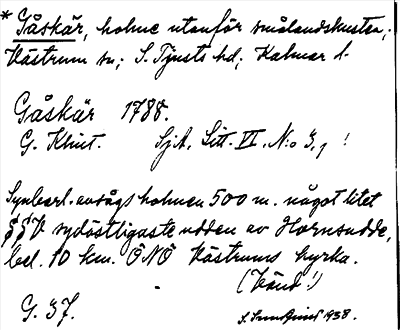 * Gåskär, holme utanför smålandskusten;
Västrum sn; S. Tjusts hd; Kalmar l.
Gåskär 1788.
G. Klint. Sj.A. Litt. VI, N:o 3, !
Synbarl. avsågs holmen 500 m. något litet
SSV sydöstligaste udden av Hornsudde,
bel. 10 km. ÖNÖ Västrums kyrka.
(Vänd!)
G. 37. 1938.